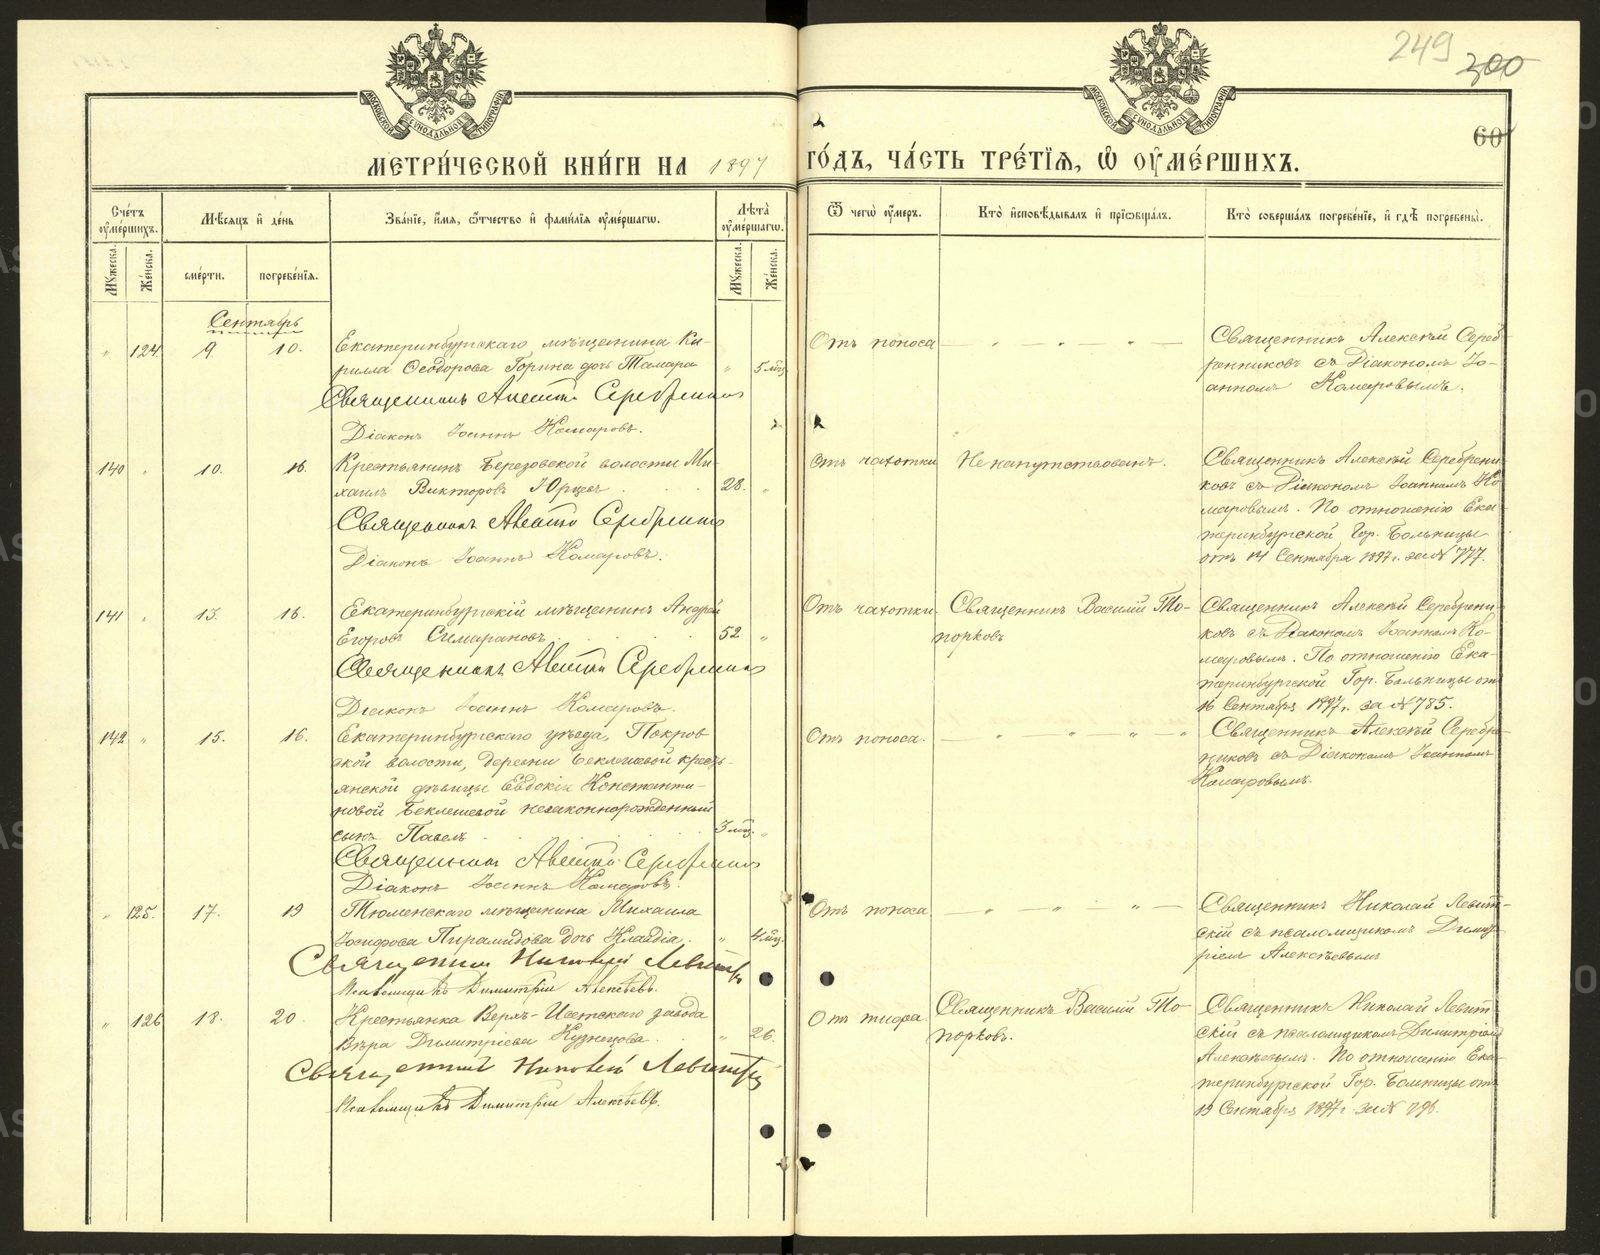 249 300
60
МОСКОВСКОЙ СѴНОДАЛЬНОЙ ТИПОГРАФІИ
МОСКОВСКОЙ СѴНОДАЛЬНОЙ ТИПОГРАФІИ
МЕТРИ́ЧЕСКОЙ КНИ́ГИ НА 1897 ГО́ДЪ, ЧА́СТЬ ТРЕ́ТІЯ, Ѡ҆ ОУ҆МЕ́РШИХЪ.
Сче́тъ оу҆ме́ршихъ.
Мꙋжеска.
Же́нска.
Мѣ́сяцъ и҆ де́нь
сме́рти.
погребе́нїя.
Зва́нїе, и҆́мя, ѻ҆́тчество и҆ фами́лїя оу҆ме́ршагѡ.
Лѣ́та оу҆ме́ршагѡ.
Мꙋжеска.
Же́нска.
Ѿ чегѡ̀ оу҆́меръ.
Кто̀ и҆сповѣ́дывалъ и҆ прїѡбща́лъ.
Кто̀ соверша́лъ погребе́нїе, и҆ гдѣ̀ погребены̀.
Сентябрь
„ 124. 9 10.
Екатеринбургскаго мѣщанина Ки-
рилла Ѳеодорова Горина дочь Тамара „ 5 мѣц.
Священникъ Алексѣй Серебренниковъ
Діаконъ Іоаннъ Комаровъ.
Отъ поноса — „ — „ — „ —
Священникъ Алексѣй Сереб-
ренниковъ съ Діакономъ Іо-
анномъ Комаровымъ.
140 „ 10. 16.
Крестьянинъ Березовской волости Ми-
хаилъ Викторовъ 28. „
Священникъ Алексѣй Серебренниковъ
Діаконъ Іоаннъ Комаровъ.
Отъ чахотки
Не напутствованъ.
Священникъ Алексѣй Серебрени-
ковъ съ Діакономъ Іоанномъ Ко-
маровымъ. По отношенію Ека-
теринбургской Гор. Больницы
отъ 14 Сентября 1897 г. за № 777.
141 „ 13. 16.
Екатеринбургскій мѣщанинъ Андрей
Егоровъ Симарановъ 52. „
Священникъ Алексѣй Серебренниковъ
Діаконъ Іоаннъ Комаровъ.
Отъ чахотки
Священникъ Василій То-
порковъ
Священникъ Алексѣй Серебрени-
ковъ съ Діакономъ Іоанномъ Ко-
маровымъ. По отношенію Ека-
теринбургской Гор. Больницы отъ
16 Сентября 1897 г. за № 785.
142 „ 15. 16.
Екатеринбургскаго уѣзда, Покров-
ской волости, деревни Беклешевой кресть-
янской дѣвицы Евдокіи Константи-
новой Беклешевой незаконнорожденный
сынъ Павелъ 3 мѣц. „
Священникъ Алексѣй Серебренниковъ
Діаконъ Іоаннъ Комаровъ.
Отъ поноса. — „ — „ — „ — „
Священникъ Алексѣй Серебре-
никовъ съ Діакономъ Іоанномъ
Комаровымъ.
„ 125. 17. 19
Тюменскаго мѣщанина Михаила
Іосифова Пирамидова дочь Клавдія. „ 4 мѣц.
Священникъ Николай Левитскій
Псаломщикъ Димитрій Алексѣевъ.
Отъ поноса. — „ — „ — „ —
Священникъ Николай Левит-
скій съ псаломщикомъ Димит-
ріемъ Алексѣевымъ
„ 126 18. 20.
Крестьянка Верхъ-Исетскаго завода
Вѣра Димитріева Кузнецова „ 26.
Священникъ Николай Левитскій
Псаломщикъ Димитрій Алексѣевъ.
Отъ тифа
Священникъ Василій То-
порковъ.
Священникъ Николай Левит-
скій съ псаломщикомъ Димитріемъ
Алексѣевымъ. По отношенію Ека-
теринбургской Гор. Больницы отъ
19 Сентября 1897 г. за № 796.